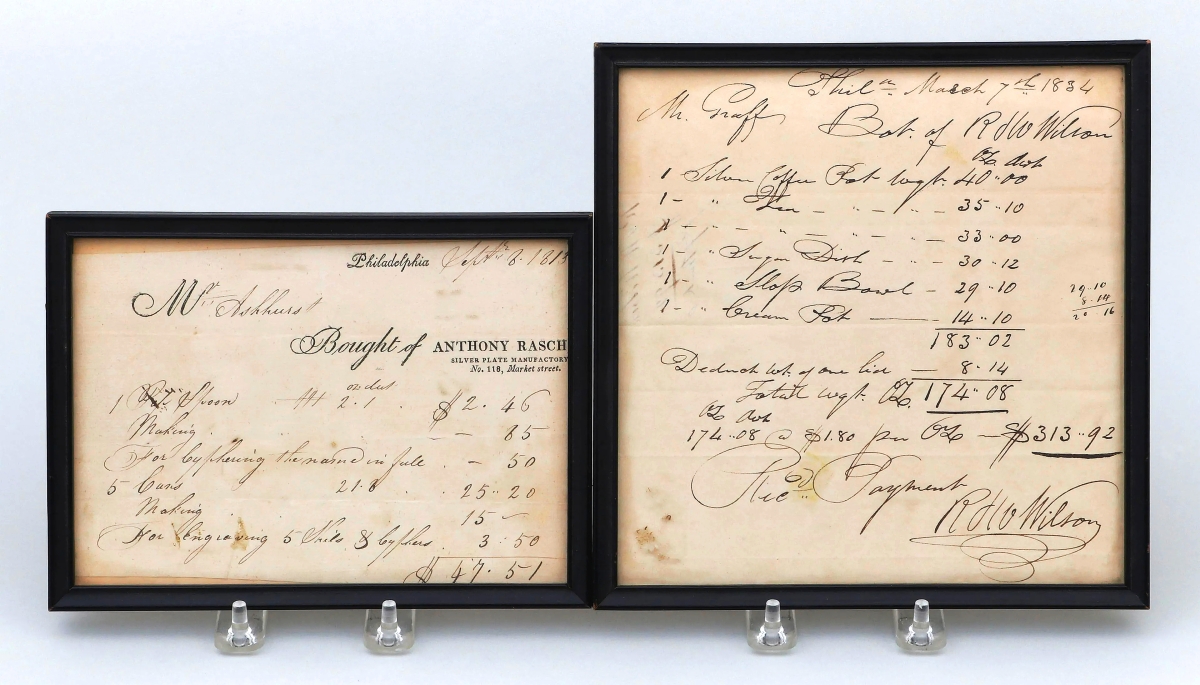 Philadelphia Septr 8. 181
Mr. Ashhurst
Bought of ANTHONY RASCH
SILVER PLATE MANUFACTORY
No. 118, Market street.
1 Spoon 2.1 $2.46
Making - 85
For Cyphering the name in full - 50
5 Cans 21.8 25..20
Making 15 -
For Engraving 5 & Cyphers 3.50
$ 47.51
Phila March 7th 1834
Mr. Graff Bot. of R & W Wilson
Oz dwt
1 Silver Coffee Pot wgt. 40..00
1 - " Tea - " - " - 35..10
1 - " - " - " - " - 33..00
1 - " Sugar Dish - " - 30..12
1 - " Slop Bowl - 29..10
1 - " Cream Pot - 14..10
183..02
29..10
8..14
20 16
Deduct wt. of one lid - 8..14
Total wgt. Oz. 174..08
Oz dwt
174..08 @ $1.80 per Oz - $313..92
Recd Payment
R & W Wilson